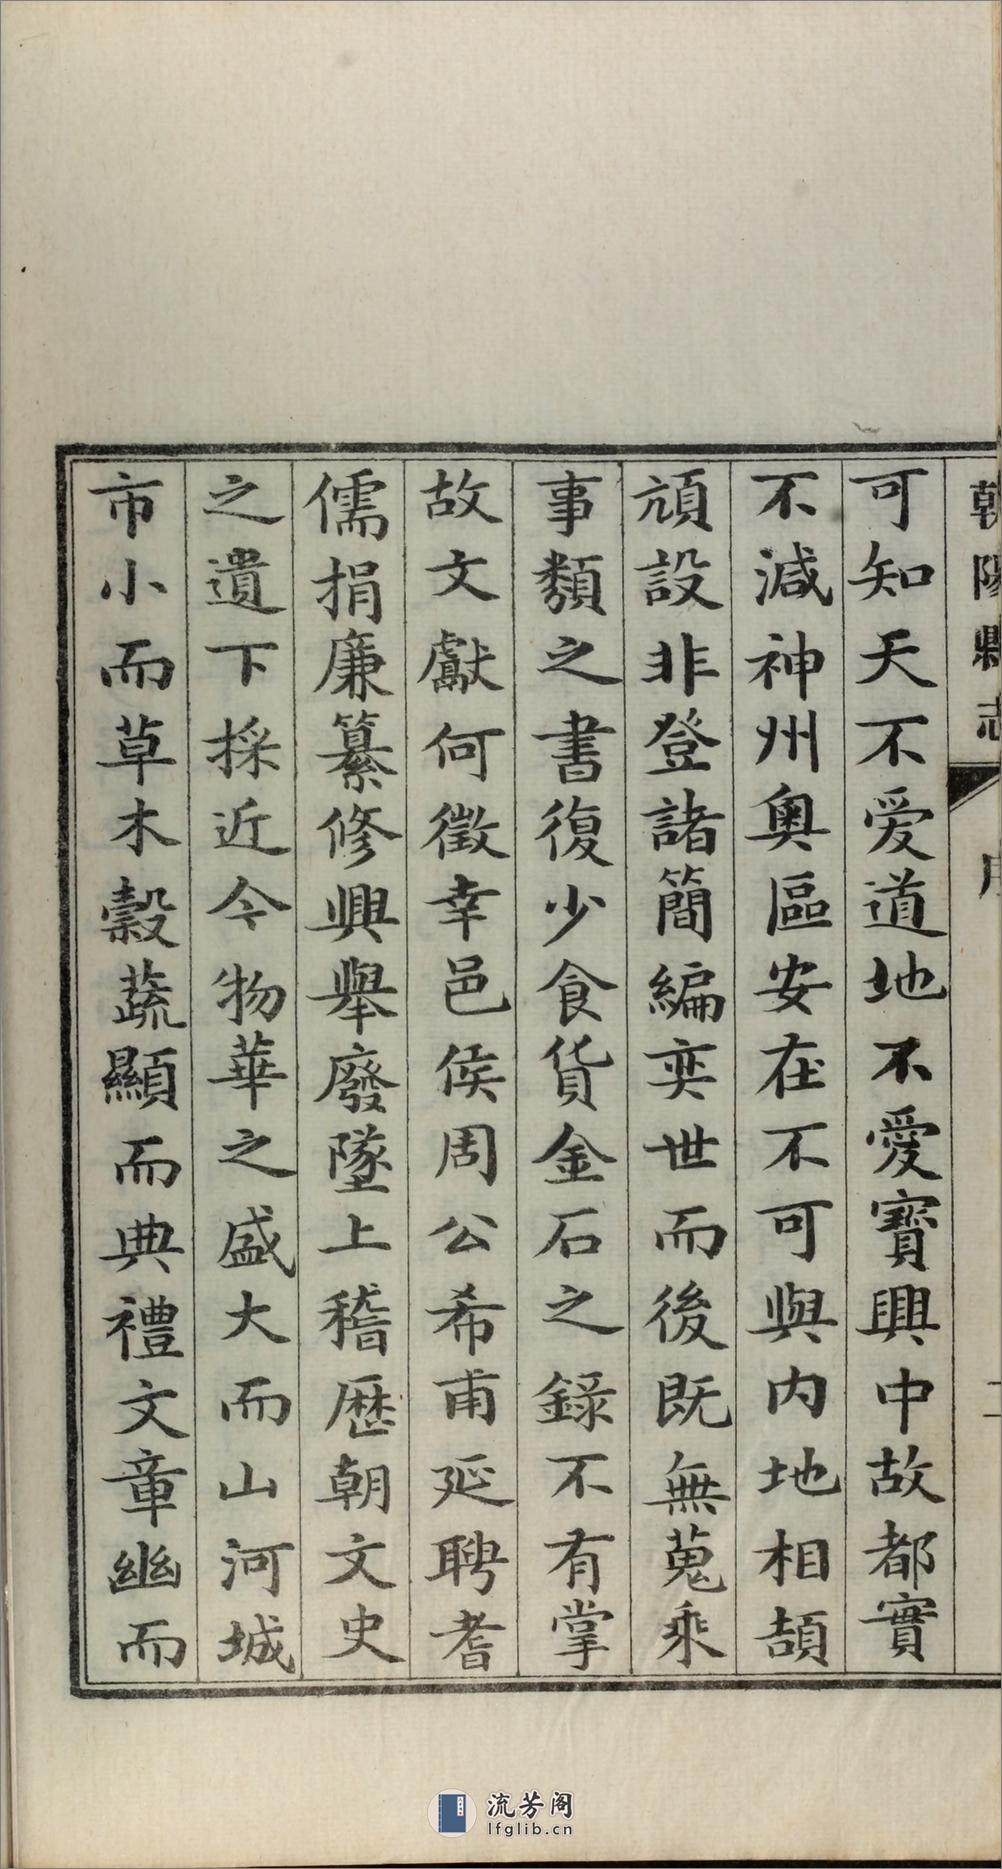 朝陽縣志 序 二
可知天不爱道地不愛寳興中故都實
不減神州奥區安在不可與内地相頡
頏設非登諸簡編奕世而後既無蒐乘
事類之書復少食貨金石之錄不有掌
故文獻何徵幸邑侯周公希甫延聘耆
儒捐廉纂修興舉廢墜上稽歴朝文史
之遺下採近今物華之盛大而山河城
市小而草木穀蔬顯而典禮文章幽而
流芳阁
lfglib.cn